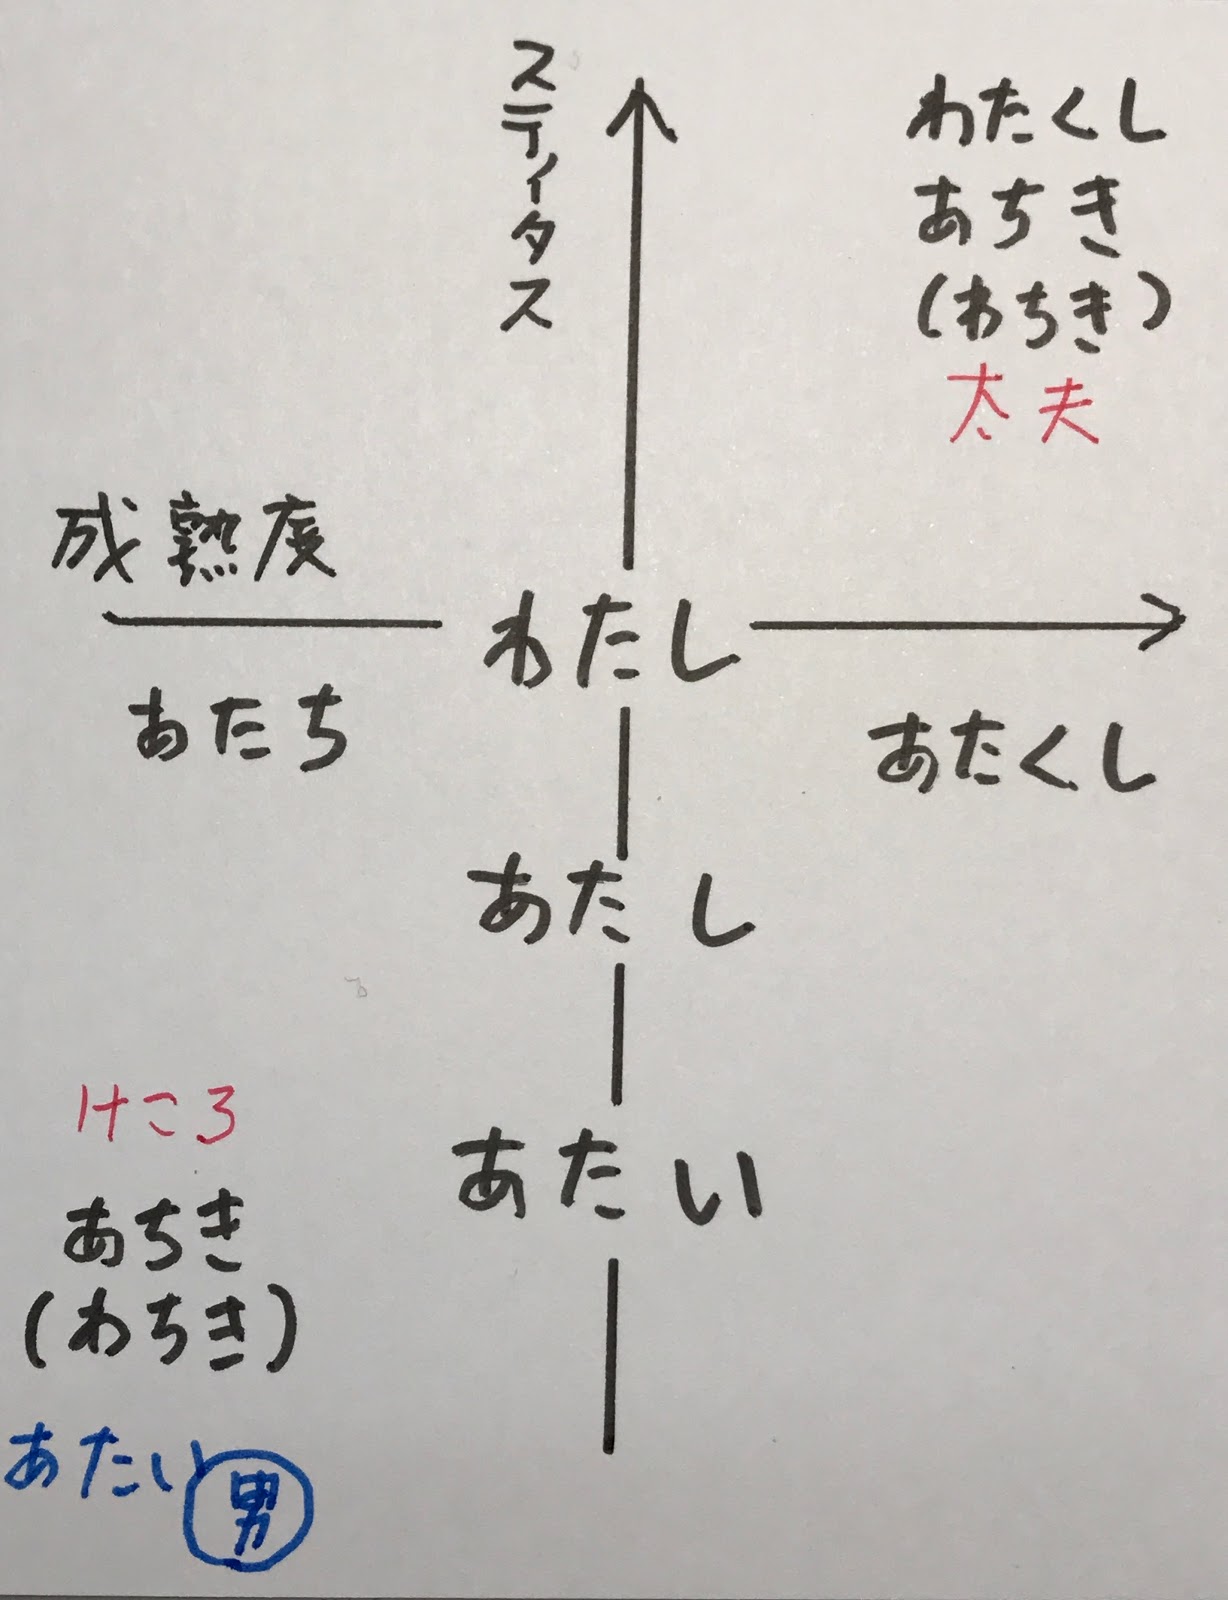 スティタス
わたくし
あちき
(わちき)
太夫
成熟度
わたし
あたち
あたくし
あたし
あたい
けころ
あちき
(わちき)
あたい男